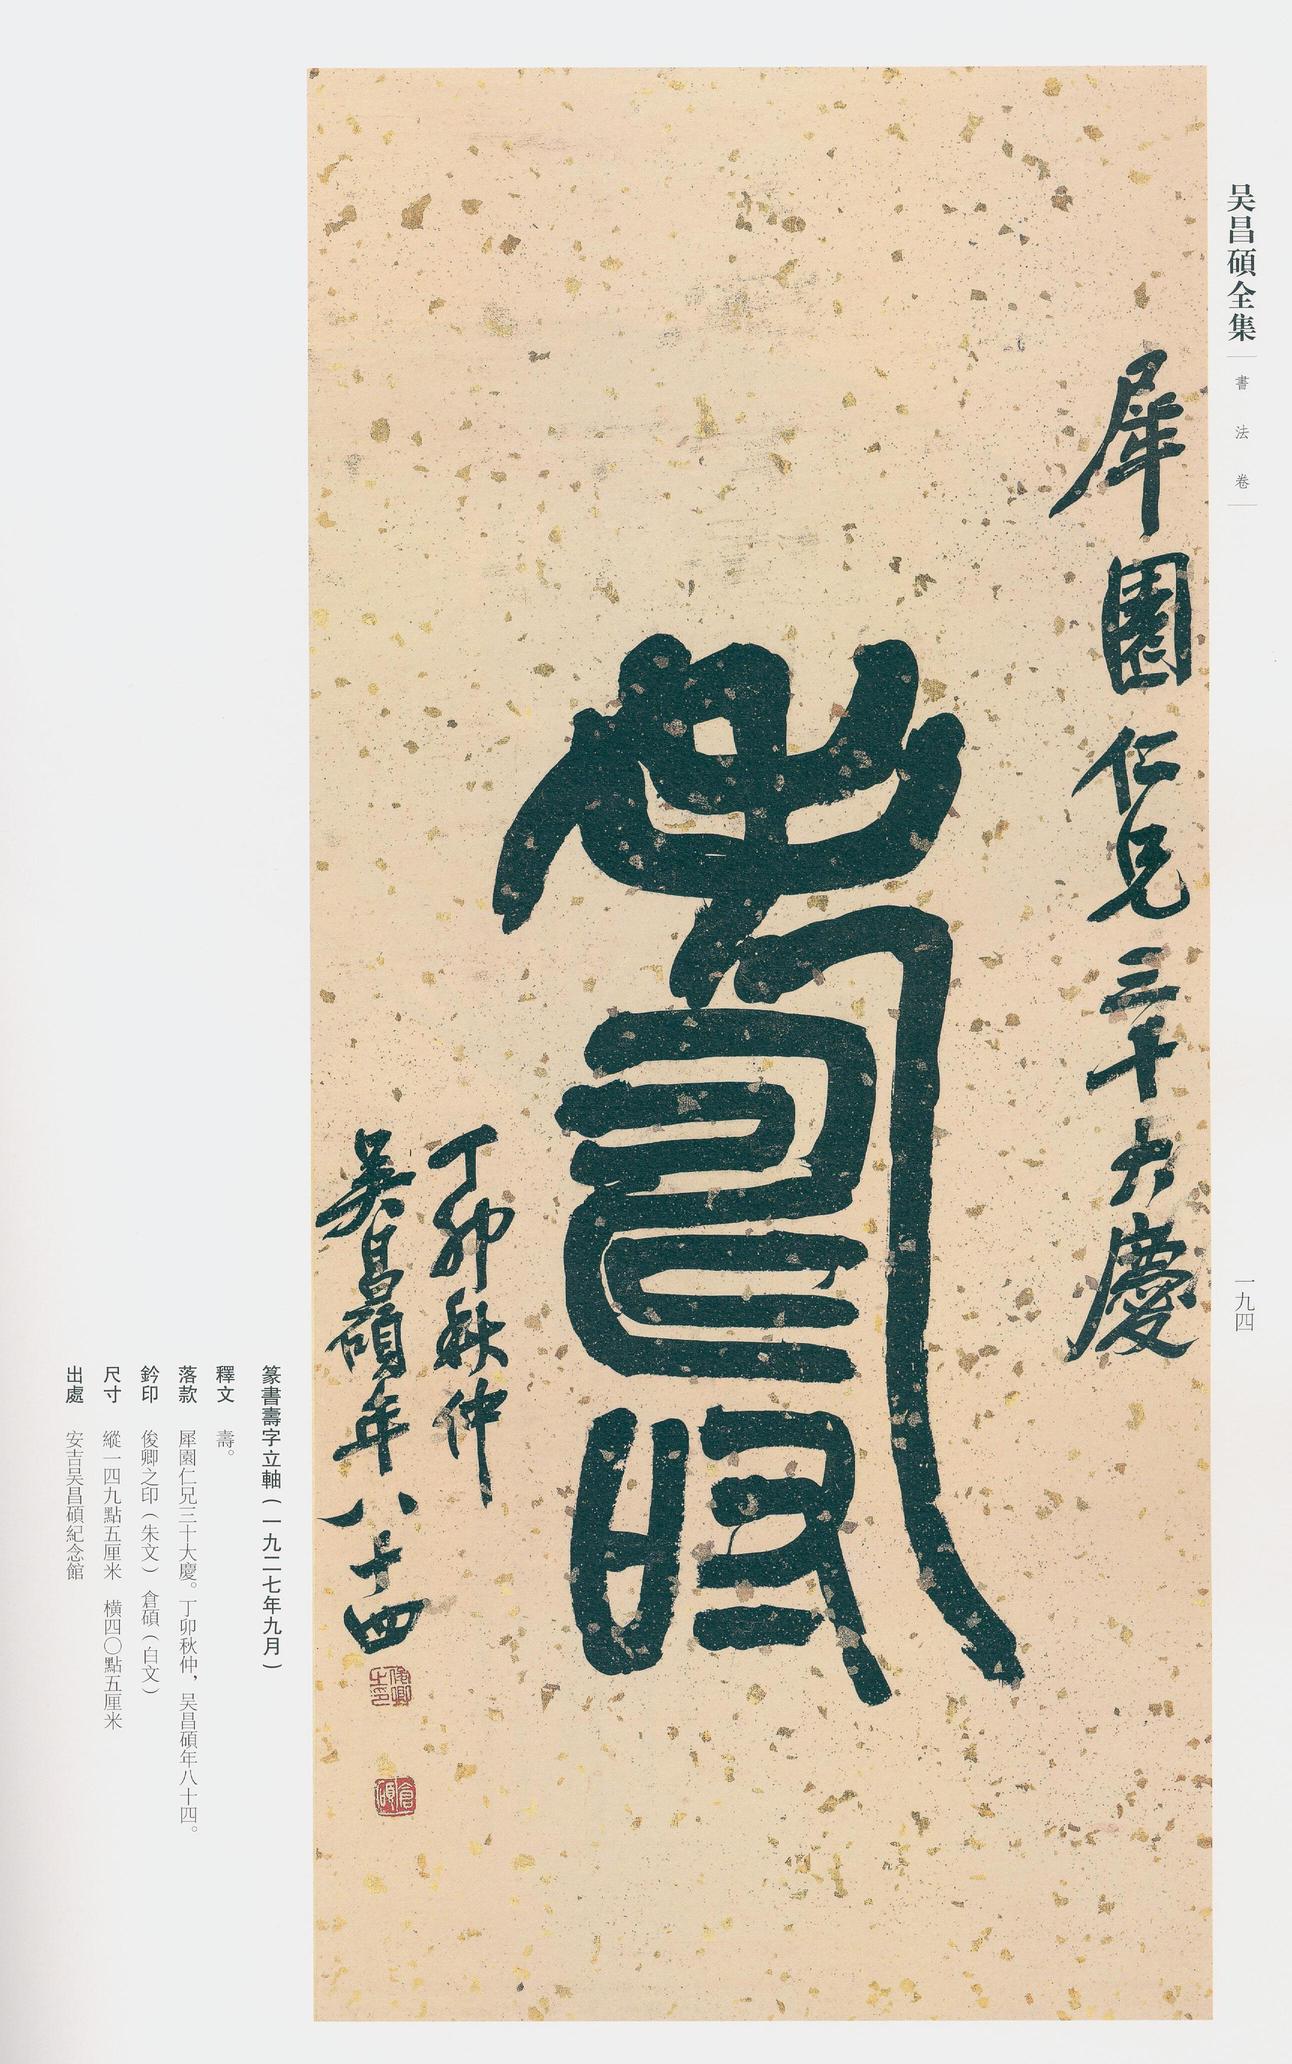 吴昌碩全集
書法卷
一九四
犀園仁兄三十大慶
壽
丁卯秋仲
吴昌碩年八十四
俊卿之印
倉碩
篆書壽字立軸（一九二七年九月）
釋文 壽。
落款 犀園仁兄三十大慶。丁卯秋仲，吴昌碩年八十四。
鈐印 俊卿之印（朱文） 倉碩（白文）
尺寸 縱一四九點五厘米 橫四〇點五厘米
出處 安吉吴昌碩紀念館